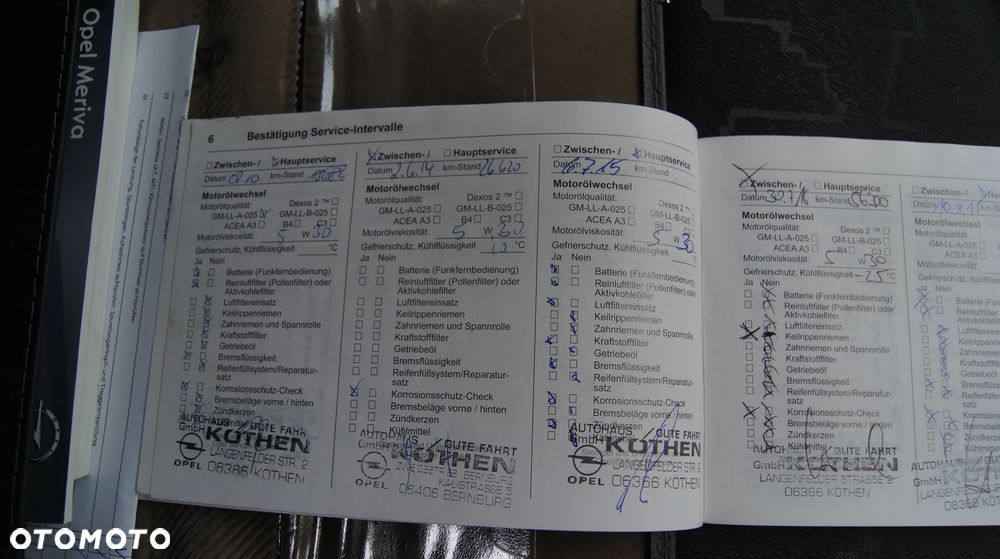 Opel Meriva
6 Bestätigung Service-Intervalle
Zwischen- / Hauptservice
Datum km-Stand
Motorölwechsel
Motorölqualität: Dexos 2 ™
GM-LL-A-025 GM-LL-B-025
ACEA A3 B4 C3
Motorölviskosität: 5 W 30
Gefrierschutz, Kühlflüssigkeit °C
Ja Nein
Batterie (Funkfernbedienung)
Reinluftfilter (Pollenfilter) oder
Aktivkohlefilter
Luftfiltereinsatz
Keilrippenriemen
Zahnriemen und Spannrolle
Kraftstofffilter
Getriebeöl
Bremsflüssigkeit
Reifenfüllsystem/Reparatur-
satz
Korrosionsschutz-Check
Bremsbeläge vorne / hinten
Zündkerzen
AUTOHAUS GUTE FAHRT
GmbH KÖTHEN
LANGENFELDER STR. 2
OPEL 06366 KÖTHEN
Zwischen- / Hauptservice
Datum 2.6.14 km-Stand 26620
Motorölwechsel
Motorölqualität: Dexos 2 ™
GM-LL-A-025 GM-LL-B-025
ACEA A3 B4 C3
Motorölviskosität: 5 W 30
Gefrierschutz, Kühlflüssigkeit °C
Ja Nein
Batterie (Funkfernbedienung)
Reinluftfilter (Pollenfilter) oder
Aktivkohlefilter
Luftfiltereinsatz
Keilrippenriemen
Zahnriemen und Spannrolle
Kraftstofffilter
Getriebeöl
Bremsflüssigkeit
Reifenfüllsystem/Reparatur-
satz
Korrosionsschutz-Check
Bremsbeläge vorne / hinten
Zündkerzen
Kühlmittel
GUTE FAHRT
KÖTHEN
BERNBURG
KALISTRASSE 5
OPEL 06406 BERNBURG
Zwischen- / Hauptservice
Datum 6.7.15 km-Stand
Motorölwechsel
Motorölqualität: Dexos 2 ™
GM-LL-A-025 GM-LL-B-025
ACEA A3 B4 C3
Motorölviskosität: 5 W 30
Gefrierschutz, Kühlflüssigkeit
Ja Nein
Batterie (Funkfernbedienung)
Reinluftfilter (Pollenfilter) oder
Aktivkohlefilter
Luftfiltereinsatz
Keilrippenriemen
Zahnriemen und Spannrolle
Kraftstofffilter
Getriebeöl
Bremsflüssigkeit
Reifenfüllsystem/Reparatur-
satz
Korrosionsschutz-Check
Bremsbeläge vorne / hinten
Zündkerzen
AUTOHAUS GUTE FAHRT
KÖTHEN
LANGENFELDER STR. 2
OPEL 06366 KÖTHEN
Zwischen- / Hauptservice
Datum 30.7.16 km-Stand
Motorölwechsel
Motorölqualität: Dexos 2 ™
GM-LL-A-025 GM-LL-B-025
ACEA A3 B4 C3
Motorölviskosität: 5 W 30
Gefrierschutz, Kühlflüssigkeit -25 °C
Ja Nein
Batterie (Funkfernbedienung)
Reinluftfilter (Pollenfilter) oder
Aktivkohlefilter
Luftfiltereinsatz
Keilrippenriemen
Zahnriemen und Spannrolle
Kraftstofffilter
Getriebeöl
Bremsflüssigkeit
Reifenfüllsystem/Reparatur-
satz
Korrosionsschutz-Check
Bremsbeläge vorne / hinten
Zündkerzen
Kühlmittel
AUTOHAUS GUTE FAHRT
GmbH KÖTHEN
LANGENFELDER STRASSE 2
06366 KÖTHEN
Zwischen- /
Datum
Motorölwechsel
Motorölqualität:
GM-LL-A-025
ACEA A3
Motorölviskosität:
Gefrierschutz, Kühlflüssigkeit
Ja Nein
Batterie (Funkfern
Aktivkohlefilter
Luftfiltereinsatz
Keilrippenriemen
Zahnriemen und Sp
Kraftstofffilter
Getriebeöl
Bremsflüssigkeit
satz
Korrosionssch
Bremsbeläge
Zündkerzen
AUTOHAUS
GmbH
OTOMOTO